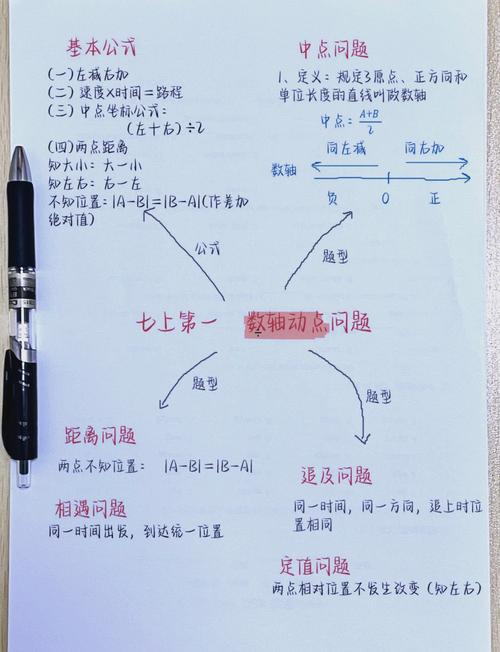 基本公式
(一)左减右加
(二)速度×时间=路程
(三)中点坐标公式:
(左+右)÷2
(四)两点距离
知大小:大-小
知左右:右-左
不知位置:|A-B|=|B-A|(作差加
绝对值)
中点问题
1、定义:规定3原点、正方向和
单位长度的直线叫做数轴
中点:A+B/2
向左减 向右加
数轴
负 0 正
公式
题型
七上第一 数轴动点问题
÷
题型
题型
距离问题
两点不知位置: |A-B|=|B-A|
相遇问题
同一时间出发,到达统一位置
追及问题
同一时间,同一方向,追上时位
置相同
定值问题
两点相对位置不发生改变(知左右)